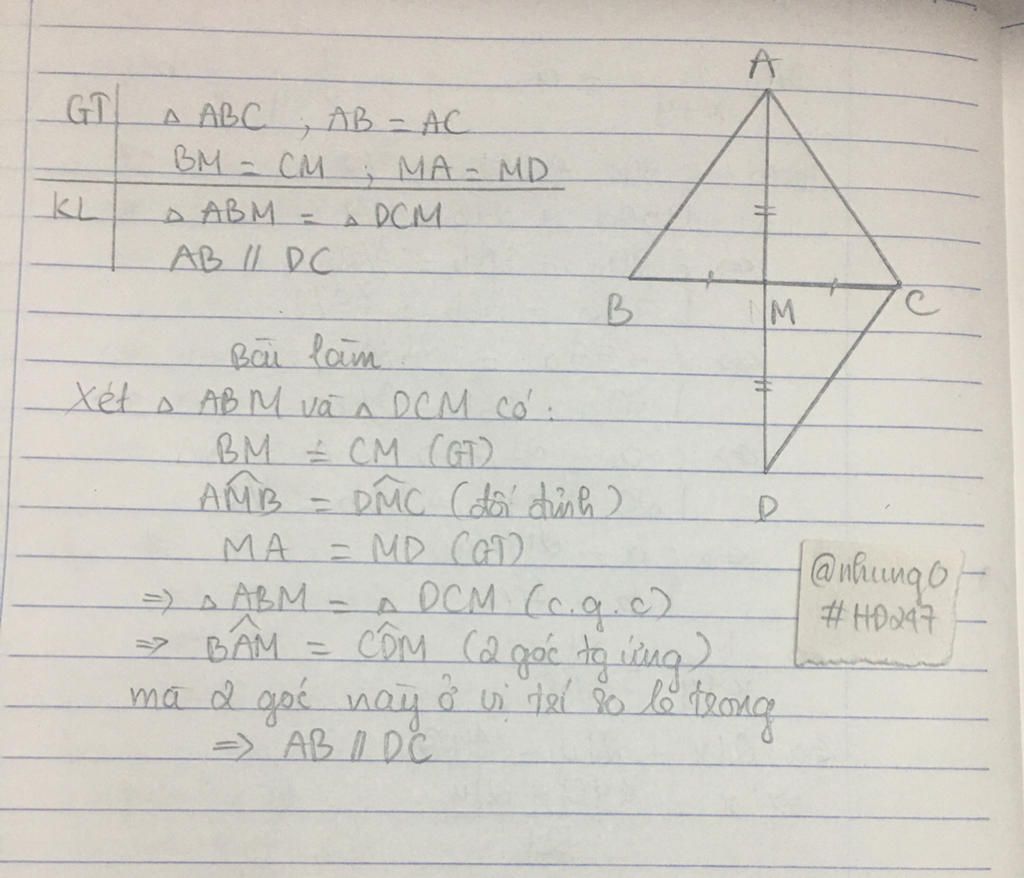 GT △ ABC ; AB = AC
BM = CM ; MA = MD
KL △ ABM = △ DCM
AB // DC
Bài làm
Xét △ ABM và △ DCM có :
BM = CM (GT)
AM̂B = DM̂C (đối đỉnh)
MA = MD (GT)
=> △ ABM = △ DCM (c.g.c)
=> BÂM = CD̂M (2 góc tg ứng)
mà 2 góc này ở vị trí so le trong
=> AB // DC
A
B
M
C
D
@nhung0
#HD247